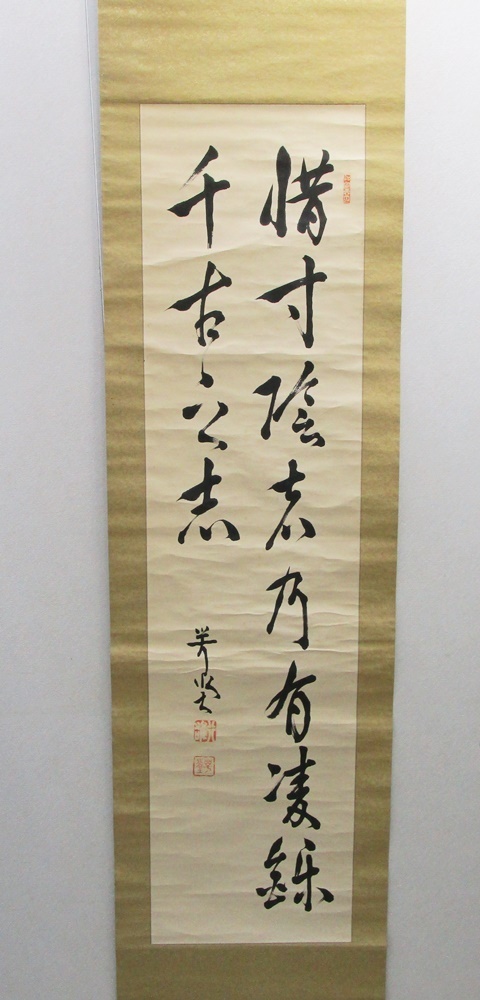 惜寸陰者乃有凌鑠
千古之志